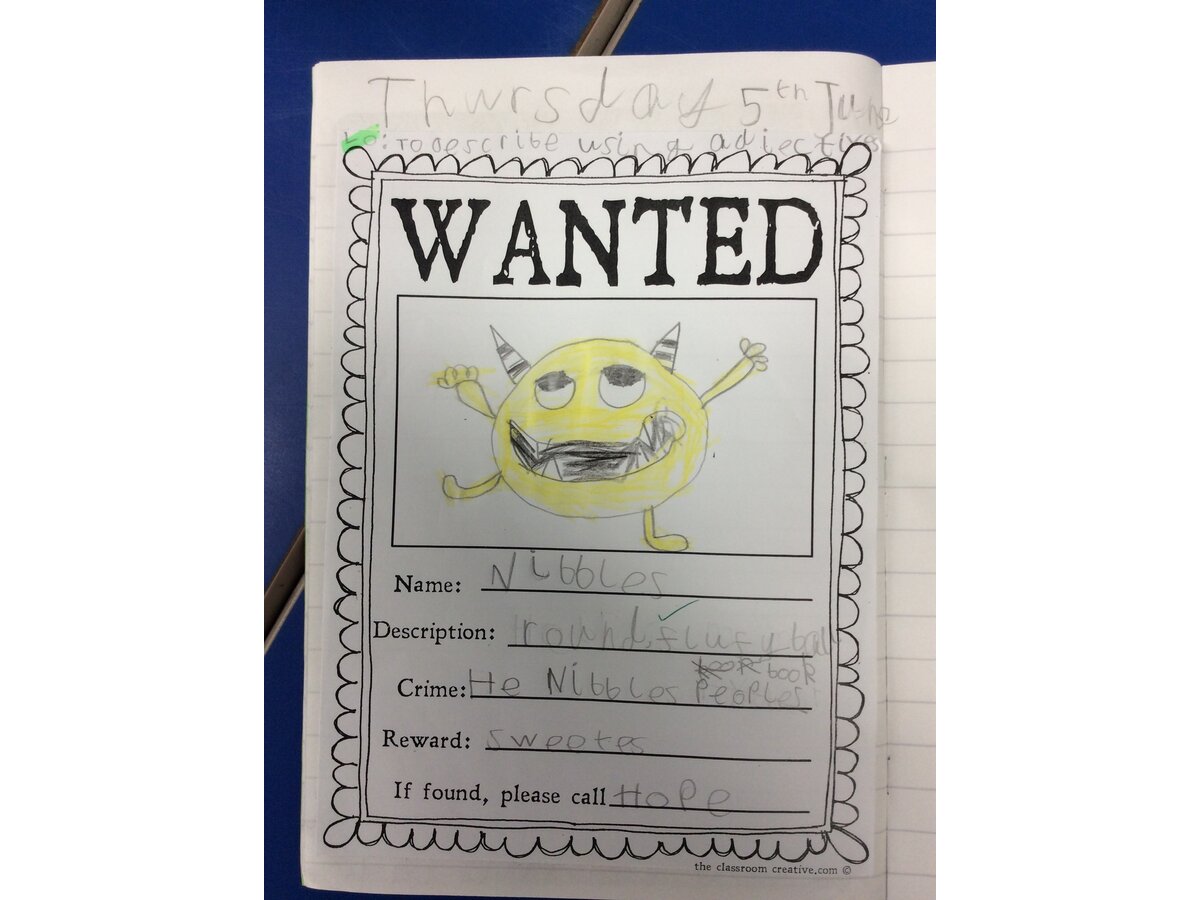 Thursday 5th June
LO: To describe using adjectives
WANTED
Name: Nibbles
Description: round, flufy ball
book
Crime: He Nibbles Peoples
Reward: sweetes
If found, please call Hope
the classroom creative.com ©